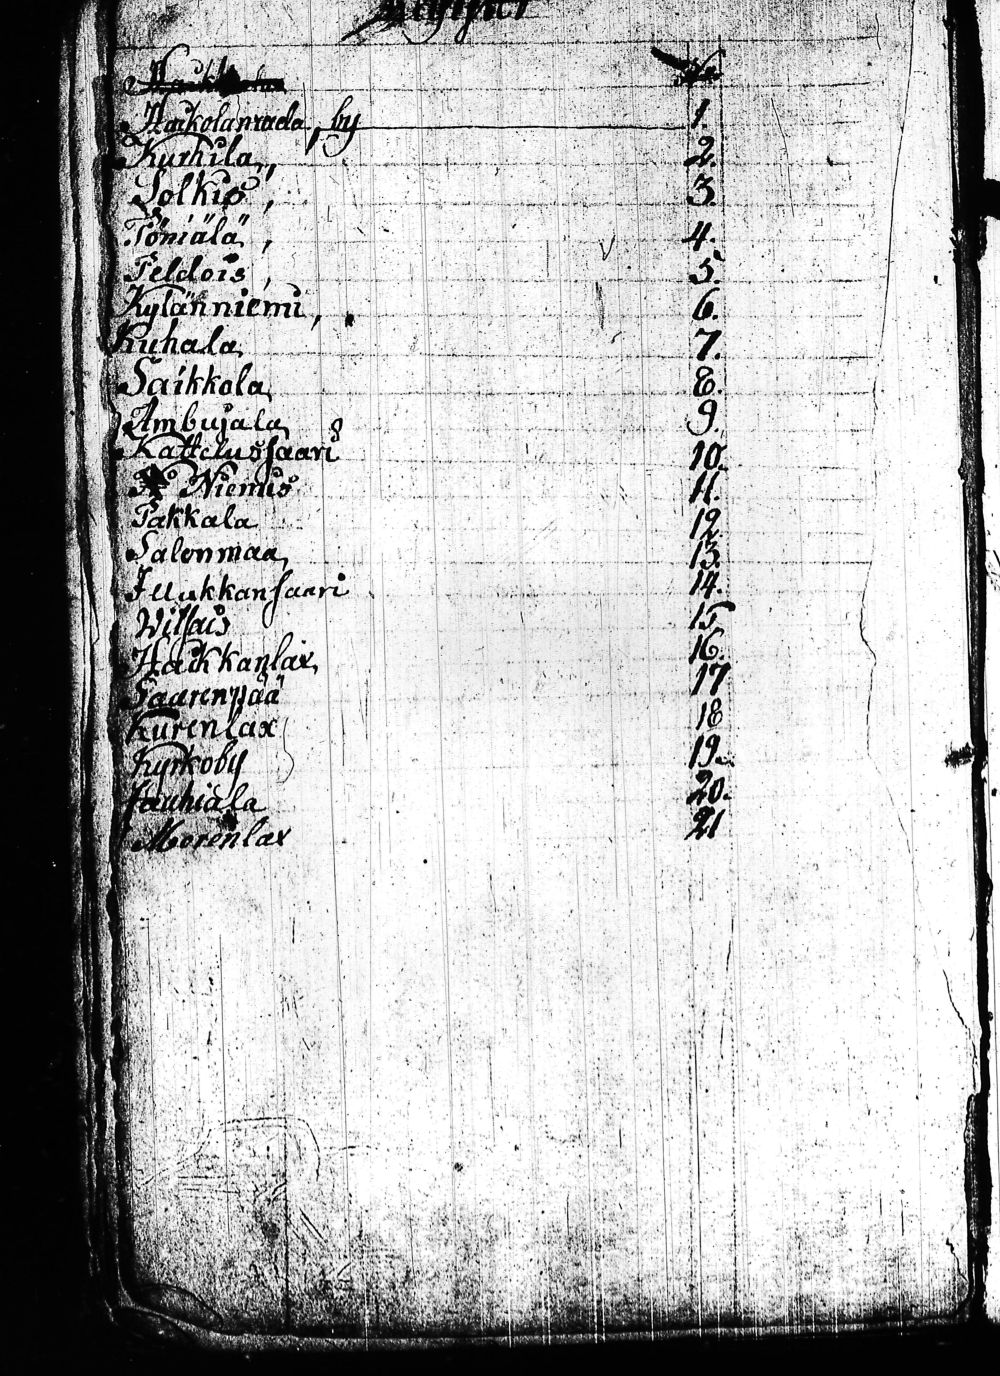 Register
No
Haikolanrada, by 1.
Kurhila, 2.
Solkis, 3.
Töniälä, 4.
Peldois, 5.
Kylänniemi, 6.
Kuhala 7.
Saikkola 8.
Ambujala 9.
Kattelussaari 10.
Niemis 11.
Pakkala 12
Salonmaa, 13.
Juukkansaari 14.
Wilsais 15
Haikkanlax, 16.
Saarenpää 17
Kurenlax 18
Kyrkoby 19.
Jauhiala 20.
Morenlax 21